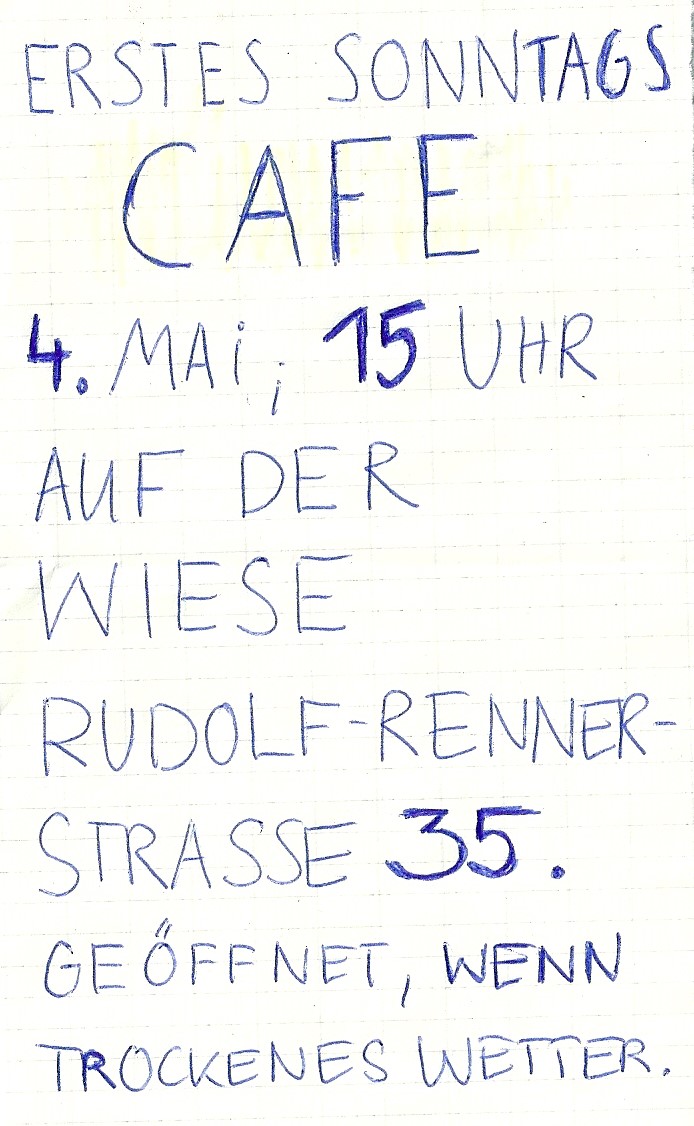 ERSTES SONNTAGS
CAFE
4. MAi, 15 UHR
AUF DER
WIESE
RUDOLF-RENNER-
STRASSE 35.
GEÖFFNET, WENN
TROCKENES WETTER.